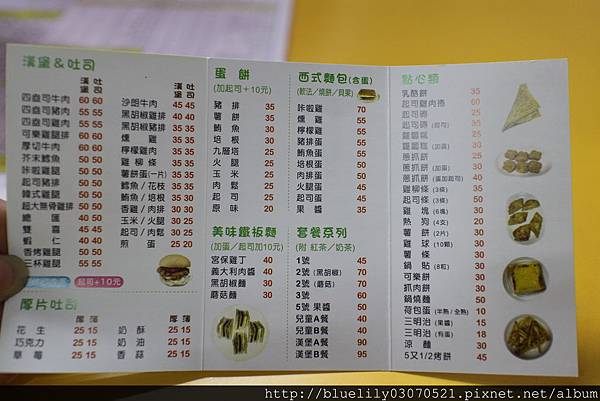 漢堡&吐司
漢堡 吐司
四盎司牛肉 60 60
四盎司豬肉 55 55
四盎司雞肉 55 55
可樂雞腿排 60 60
厚切牛肉 60 60
芥末鱈魚 50 50
咔啦雞腿 50 50
起司豬排 50 50
韓式雞腿 50 50
超大熱狗雞腿 50 50
總匯 50 50
雙喜 45 45
蝦仁 50 50
香烤雞腿 50 50
三杯雞腿 55 55
漢堡 吐司
沙朗牛肉 45 45
黑胡椒雞排 40 40
黑胡椒豬排 35 35
燻雞 35 35
檸檬雞 35 35
雞柳條 35 35
薯餅(一片) 35 35
鱈魚/花枝 35 35
鮪魚/培根 35 35
香雞/肉排 30 30
玉米/火腿 30 30
起司/肉鬆 30 25
煎蛋 25 20
起司+10元
厚片吐司
厚 薄
花生 25 15
巧克力 25 15
草莓 25 15
厚 薄
奶酥 25 15
奶油 25 15
香蒜 25 15
蛋餅
(加起司+10元)
豬排 35
薯餅 35
鮪魚 30
培根 30
九層塔 25
火腿 25
玉米 25
肉鬆 25
起司 25
原味 20
美味鐵板麵
(加蛋/起司加10元)
宮保雞丁 40
義大利肉醬 40
黑胡椒麵 40
蘑菇麵 40
西式麵包(含蛋)
(軟法/燒餅/貝果)
咔啦雞 70
燻雞 55
檸檬雞 55
豬排蛋 55
鮪魚蛋 55
培根蛋 50
肉排蛋 50
火腿蛋 45
起司蛋 45
果醬 35
套餐系列
(附 紅茶/奶茶)
1號 45
2號(黑胡椒) 70
2號(蘑菇) 70
3號 60
5號 果醬 50
兒童A餐 40
兒童B餐 40
漢堡A餐 90
漢堡B餐 95
點心類
乳酪餅 35
蔥抓餅 25
蔥抓餅(加蛋) 30
蔥抓餅(蛋加起司) 40
雞柳條(3條) 35
起司條(3條) 50
雞塊(6塊) 30
熱狗(4支) 20
薯餅(2片) 30
雞球(10顆) 30
鍋貼(8粒) 30
可樂餅 30
抓肉餅 30
鍋燒麵 50
荷包蛋(半熟/全熟) 10
三明治(果醬) 15
三明治(有蛋) 18
涼麵 30
5又1/2烤餅 45
http://bluelily03070521.pixnet.net/album